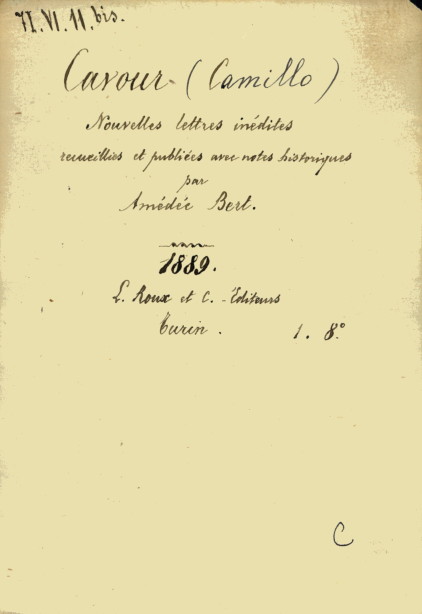 71.VI.11.bis.
Cavour (Camillo)
Nouvelles lettres inédites
recueillies et publiées avec notes historiques
par
Amédée Bert.
1889.
L. Roux et C. - Editeurs
Turin. 1. 8°
C